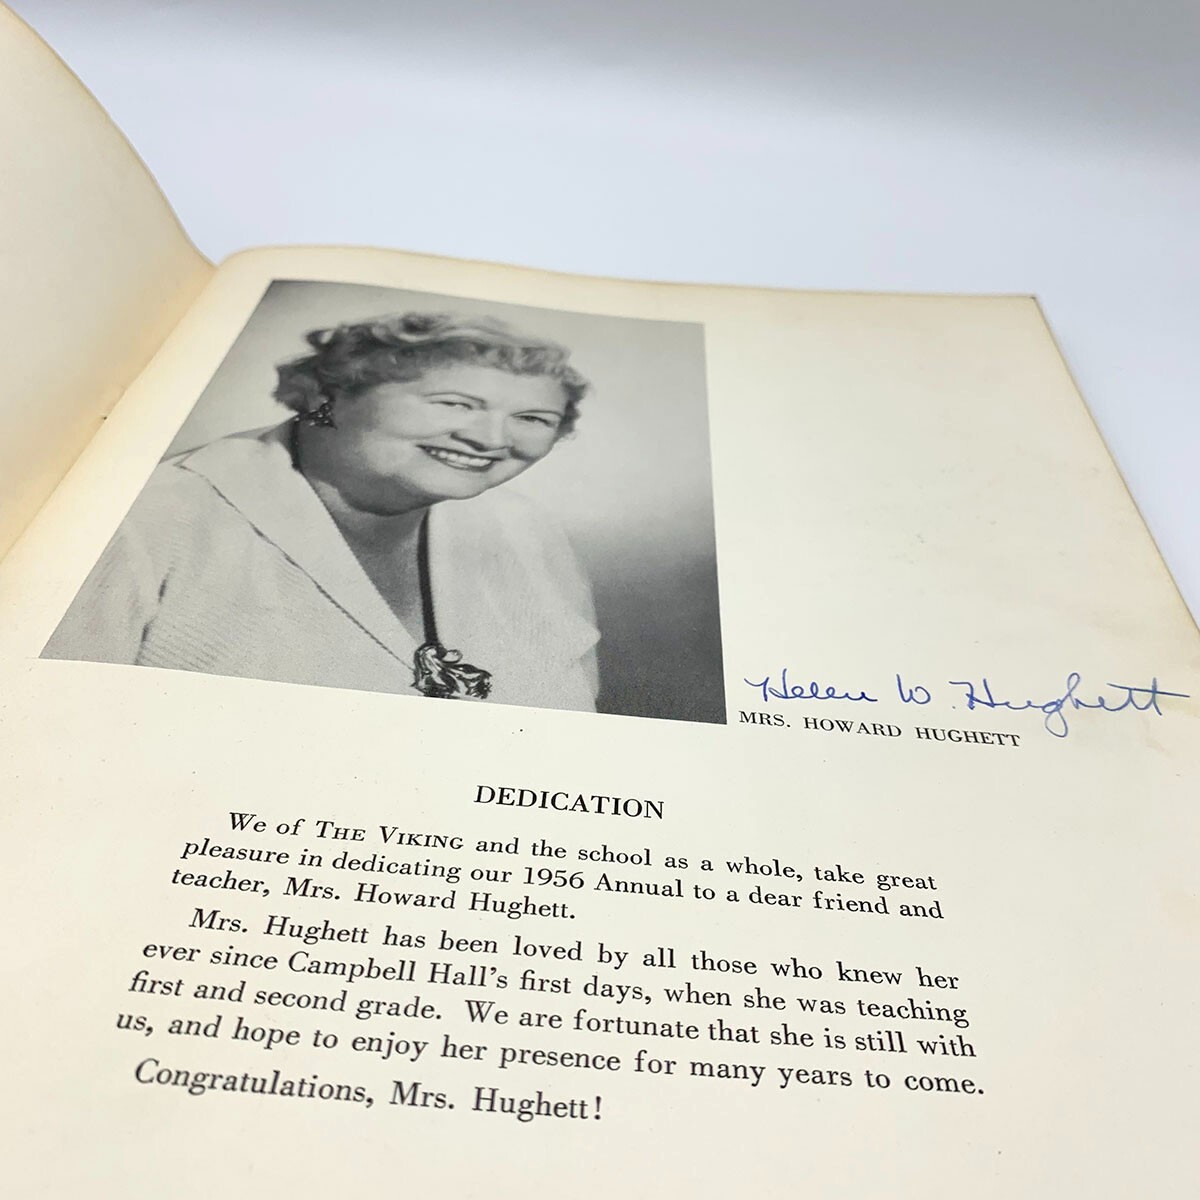 Helen W. Hughett
MRS. HOWARD HUGHETT
DEDICATION
We of THE VIKING and the school as a whole, take great
pleasure in dedicating our 1956 Annual to a dear friend and
teacher, Mrs. Howard Hughett.
Mrs. Hughett has been loved by all those who knew her
ever since Campbell Hall's first days, when she was teaching
first and second grade. We are fortunate that she is still with
us, and hope to enjoy her presence for many years to come.
Congratulations, Mrs. Hughett!